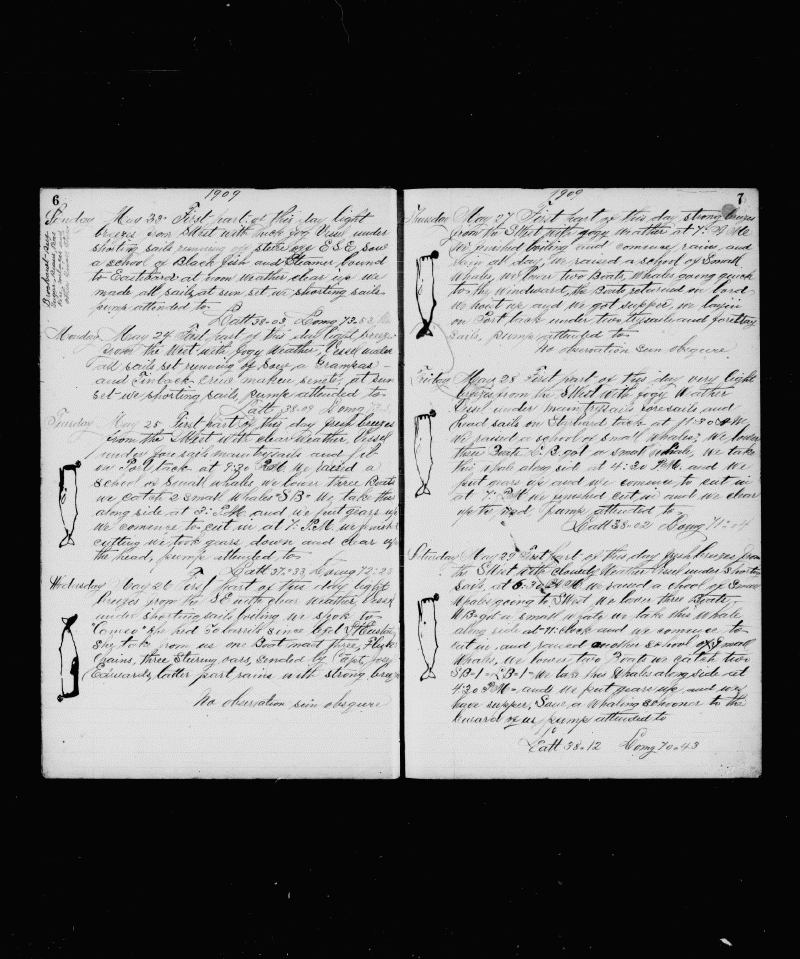 6
1909
Sunday May 23" First part of this day light
breezes from SWest with thick fog Vessel under
shorting sails running off steer by ESE, saw
a school of Black fish and Steamer bound
to Eastward at noon weather clear up we
made all sails, at sun set we shorting sails
pump attended to
Latt 38-03 Long 73-53
Monday May 24 First part of this day light breezes
from the West with fogy Weather, Vessel under
all sails set running off saw a Grampus
and Finback Crew maken senet, at sun
set we shorting sails, pump attended to
Latt 38-09 Long
Tuesday May 25, First part of this day fresh breezes
from the SWest with clear weather, Vessel
under foresail maintrysails and jib
on Port tack at 9:30 AM we raised a
school of Small whales we lower three Boats
we catch 2 small Whales "SB" We take this
along side at 3" P.M. and we put gears up
we comence to cut in at 7" P.M. we finish
cutting we took gears down and clear up
the head, pump attended to
Latt 37-33 Long 72-23
Wednesday May 26 First part of this day light
Breezes from the SE with clear weather Vessel
under shorting sails
"Cameo" had 30 barrels since left
They took from us one Boat mast three,
chains, three Steering oars, sended by Capt, Jose
Edwards, latter part rains with strong breeze
No observation sun obsqure
7
1909
Thursday May 27 First part of this day strong breezes
from the SWest with fogy weather at 7"
We finished boiling and comence rain, and
rain all day, we raised a school of Small
Whales, we lower two Boats, Whales going quick
to the Windward, the Boats returned on bord
We hoist up and we got supper, we layin
on Port tack under two trysails and forestay
sails, pumps attended to
No observation sun obsqure.
Friday May 28 First part of this day very light
breezes from the SWest with fogy Weather
Vessel under maintrysails foresails and
head sails on Starbord tack at 11:30 AM
We raised a school of small whales, We lower
three Boats S.B got a small whale, we take
this whale along side at 4:30 P.M. and we
put gears up and we comence to cut in
at 7" P.M we finished cut in and we clear
up to Head pump attended to
Latt 38-02 Long 71-04
Saturday May 29 First part of this day fresh breezes from
the SWest with cloudely Weather Vessel under shorting
sails, at 6:30 A.M we raised a chool of Small
Whales going to SWest, We lower three Boats
WB got a small whale we take this whale
along side at 11:clock and we comence to
cut in and raised another school of Small
Whales, we lower two Boats we catch two
SB-1- LB-1- We take this Whales along side at
4:30 P.M- and we put gears up, and we
have supper, Saw a Whaling schooner to the
Leward of us pump attended to
Latt 38-12 Long 70-43